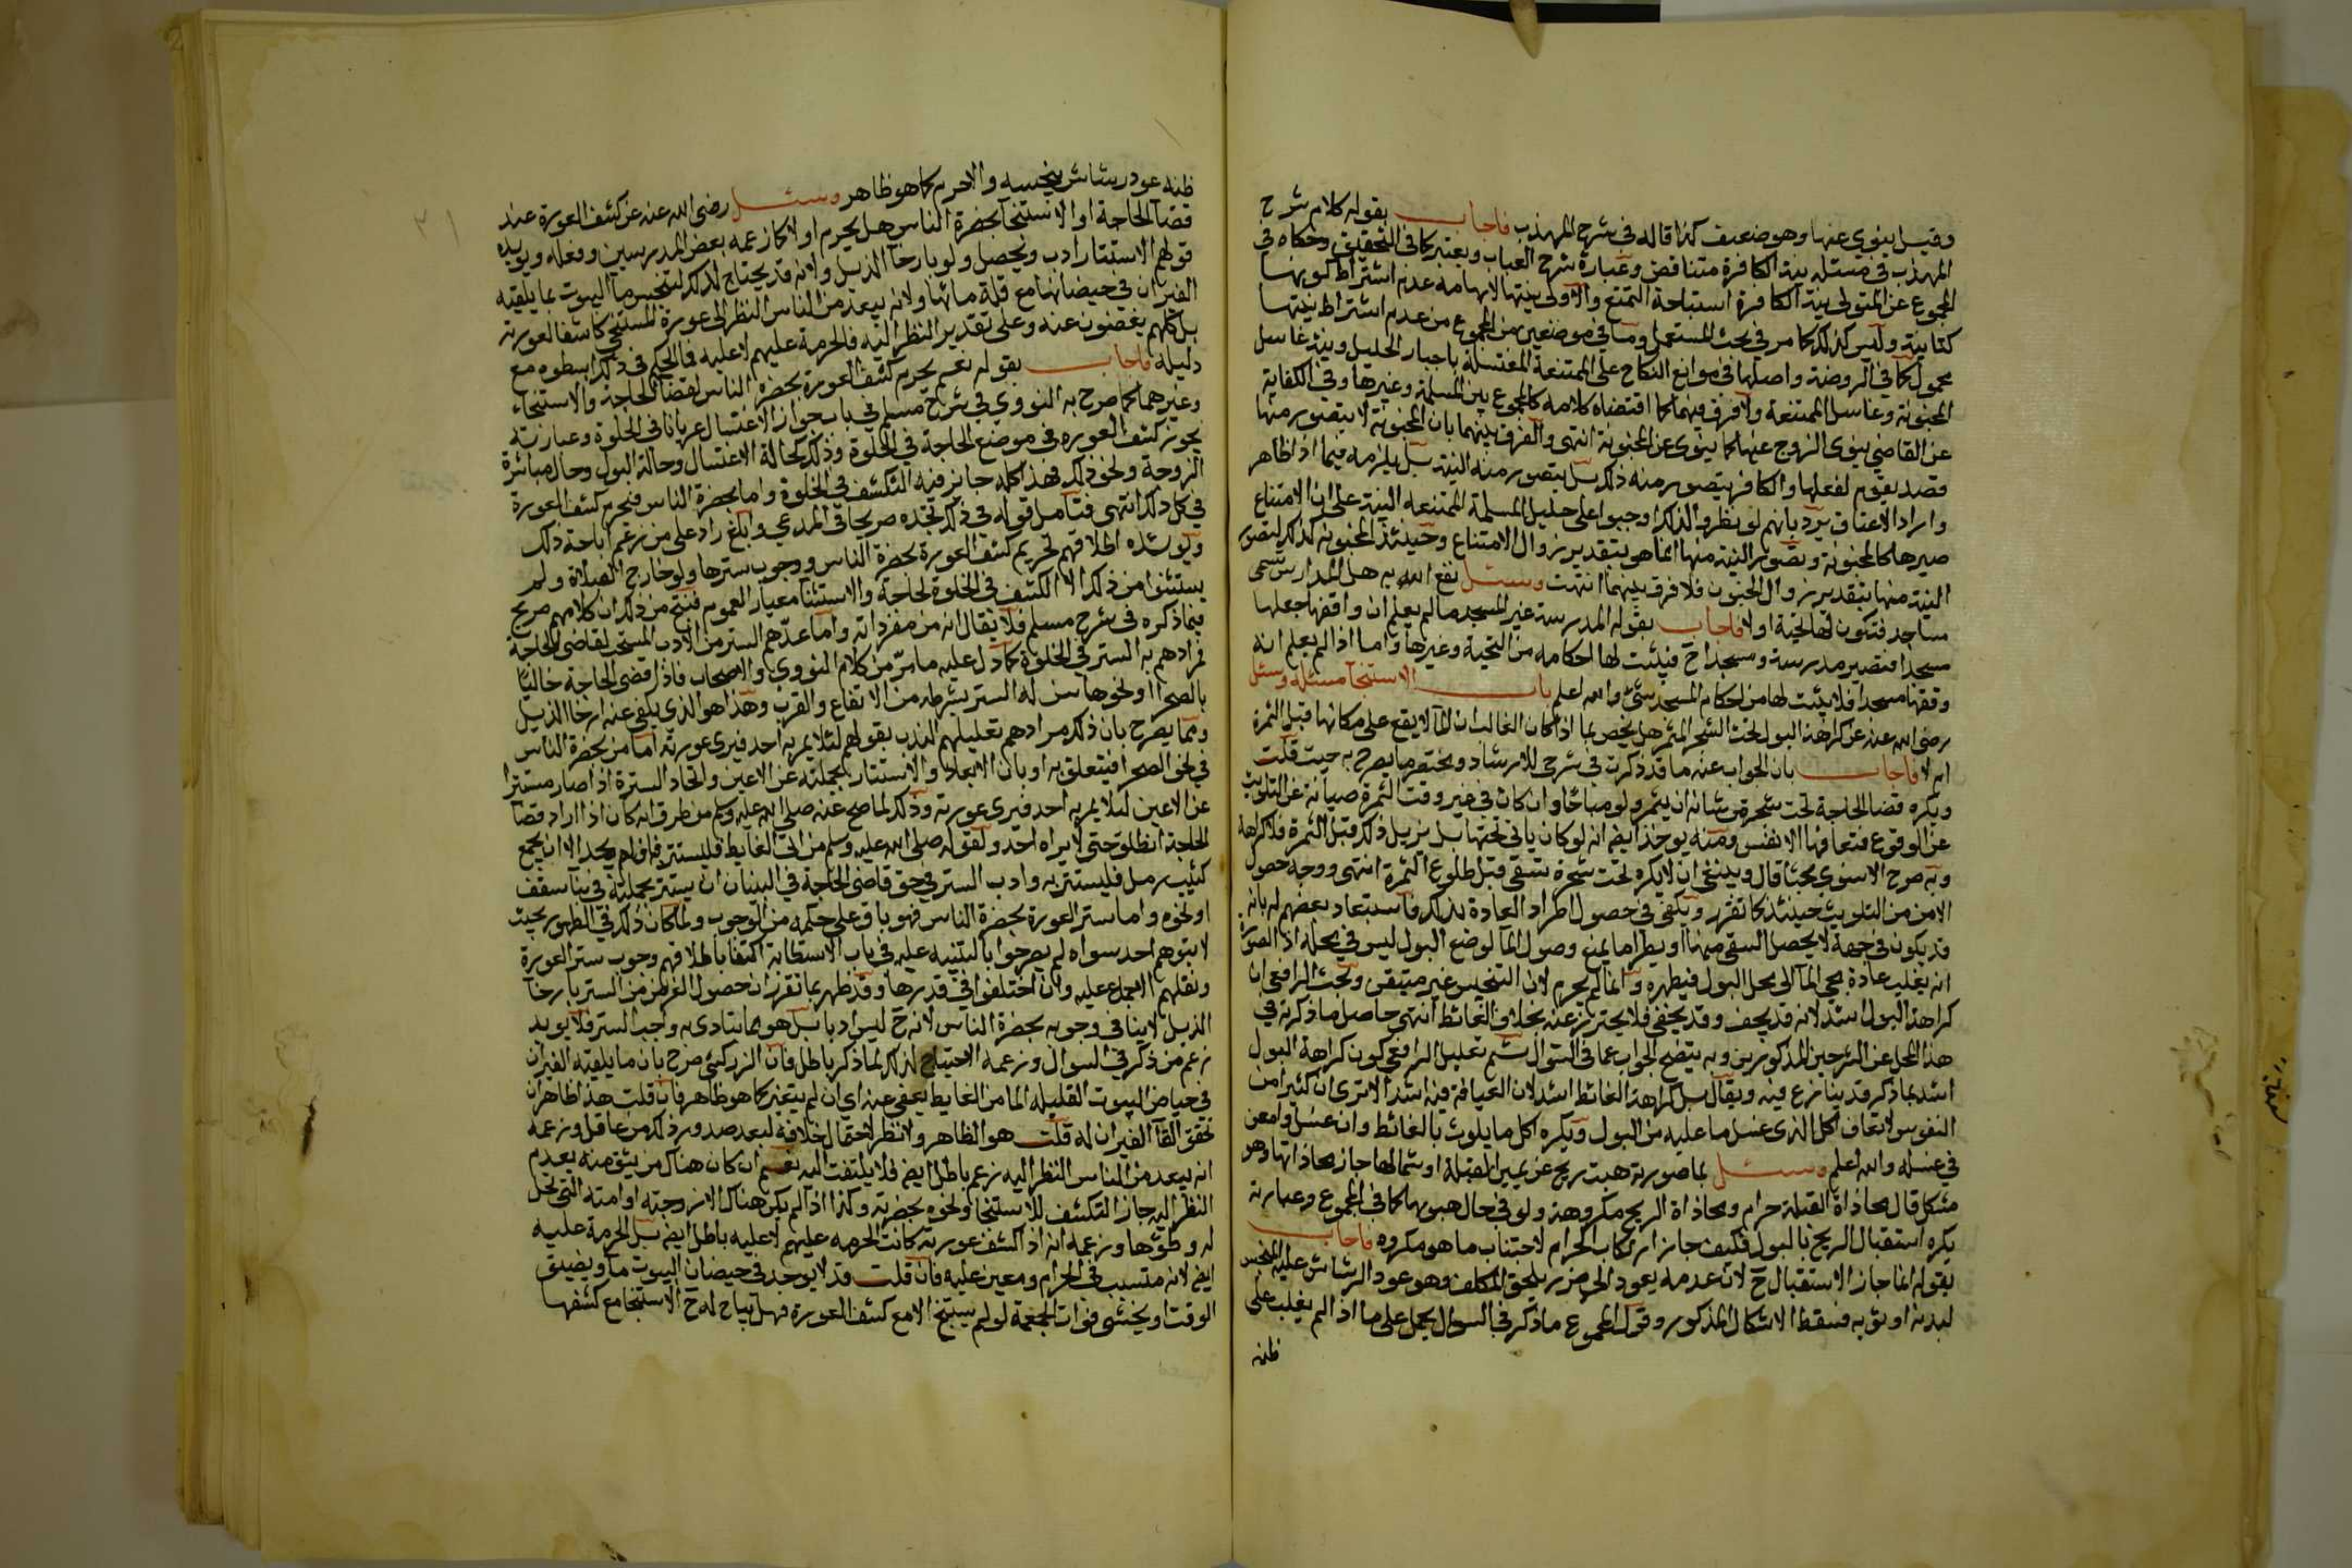 وقيل ينوي عنها وهو ضعيف كذا قاله في شرح المهذب فاجاب بقوله كلام شرح
المهذب في مسئلة نية الكافرة متناقض وعبارة شرح العباب ويعتبر كما في التحقيق وحكاه في
المجموع عن المتولي نية الكافرة استباحة التمتع والاولى بنيتها لايهامه عدم اشتراط كونها
كتابية وليس كذلك كما مر في بحث المستعمل وما في موضعين من المجموع من عدم اشتراط نيتها
محمول كما في الروضة واصلها في موانع النكاح على الممتنعة المغتسلة باجبار الحليل ونية غاسل
المجنونة وغاسل الممتنعة ولا فرق فيهما كما اقتضاه كلامه كالمجموع بين المسلمة وغيرها وفي الكفاية
عن القاضي ينوي الزوج عنها كما ينوي عن المجنونة انتهى والفرق بينهما بان المجنونة لا يتصور منها
قصد يقوم لفعلها والكافر يتصور منه ذلك بل يتصور منه النية بل يلزمه فيما اذا ظاهر
واراد الاعتاق يرد بانهم لو نظروا لذلك اوجبوا على حليل المسلمة الممتنعة النية على ان الامتناع
صيرها كالمجنونة وتصور النية منها انما هو بتقدير زوال الامتناع وحينئذ المجنونة كذلك لتصور
النية منها بتقدير زوال الجنون فلا فرق بينهما انتهت وسئل نفع الله به هل المدارس تسمى
مساجد فتكون لها تحية او لا فاجاب بقوله المدرسة غير المسجد ما لم يعلم ان واقفها جعلها
مسجدا فتصير مدرسة ومسجدا ح فيثبت لها احكامه من التحية وغيرها واما اذا لم يعلم انه
وقفها مسجدا فلا يثبت لها من احكام المسجد شئ والله اعلم باب الاستنجآ مسئلة وسئل
رضي الله عنه عن كراهة البول تحت الشجر المثمر هل يخص بما اذا كان الغالب ان المآ لا يقع على مكانها قبل الثمرة
ام لا فاجاب بان الجواب عنه ما قد ذكرت في شرحي للارشاد ومختصره ما يصرح به حيث قلت
ويكره قضا الحاجة تحت شجرة من شانه ان يثمر ولو مباحا وان كان في غير وقت الثمرة صيانة عن التلويث
عن الوقوع فتعافها الانفس ومنه يوخذ ايض انه لو كان ياتي تحتها سيل يزيل ذلك قبل الثمرة فلا كراهة
وبه صرح الاسنوي بحثا قال وينبغي ان لا يكره تحت شجرة تسقى قبل طلوع الثمرة انتهى ووجه حصول
الامن من التلويث حينئذ كما تقرر ويكفي في حصول اطراد العادة بذلك فاستبعاد بعضهم له بانه
قد يكون في جهة لا يحصل السقي منها او يطرا ما يمنع وصول المآ لوضع البول ليس في محله اذ الصورة
انه يغلب عادة مجي المآ الى محل البول فيطهره وانما لم يحرم لان التنجيس غير متيقن وبحث الرافعي ان
كراهة البول اشد لانه قد يجف وقد يخفى فلا يحترز عنه بخلاف الغائط انتهى حاصل ما ذكرته في
هذا المحل عن الشرحين المذكورين وبه يتضح الجواب عما في السؤال ثم تعليل الرافعي كون كراهة البول
اشد بما ذكر قد ينازع فيه ويقال بل كراهة الغائط اشد لان العيافة فيه اشد الا ترى ان كثيرا من
النفوس لا تعاف اكل الذي غسل ما عليه من البول ويكره اكل ما يلوث بالغائط وان غسل وامعن
في غسله والله اعلم وسئل بما صورته هبت ريح عن يمين القبلة او شمالها جاز محاذاتها وهو
مشكل قال محاذاة القبلة حرام ومحاذاة الريح مكروهة ولو في حال هبوبها كما في المجموع وعبارته
يكره استقبال الريح بالبول فكيف جاز ارتكاب الحرام لاجتناب ما هو مكروه فاجاب
بقوله انما جاز الاستقبال ح لان عدمه يعود الى ضرر يلحق المكلف وهو عود الرشاش عليه المنجس
لبدنه او ثوبه فسقط الاشكال المذكور وقول المجموع ما ذكر في السوال يحمل على ما اذا لم يغلب على
ظنه
ظنه عود رشاش ينجسه والا حرم كما هو ظاهر وسئل رضي الله عنه عن كشف العورة عند
قضآ الحاجة او الاستنجآ بحضرة الناس هل يحرم او لا كما زعمه بعض المدرسين وفعله ويويده
قولهم الاستتار ادب ويحصل ولو بارخآ الذيل ولانه قد يحتاج لذلك لتنجس مآ البيوت بما يلقيه
الفيران في حيضانها مع قلة مائها ولانه يبعد من الناس النظر الى عورة المستنجي كاشفا لعورته
بل كلهم يغضون عنه وعلى تقدير النظر اليه فالحرمة عليهم لا عليه فما الحكم في ذلك ابسطوه مع
دليله فاجاب بقوله نعم يحرم كشف العورة بحضرة الناس لقضآ الحاجة والاستنجاء
وغيرهما كما صرح به النووي في شرح مسلم في باب جواز الاغتسال عريانا في الخلوة وعبارته
يجوز كشف العورة في موضع الحاجة في الخلوة وذلك كحالة الاغتسال وحالة البول وحال مباشرة
الزوجة ونحو ذلك فهذا كله جايز فيه التكشف في الخلوة واما بحضرة الناس فيحرم كشف العورة
في كل ذلك انتهى فتامل قوله في ذلك تجده صريحا في المدعي وابلغ راد على من زعم اباحة ذلك
ويوشده اطلاقهم تحريم كشف العورة بحضرة الناس ووجوب سترها ولو خارج الصلاة ولم
يستثنوا من ذلك الا الكشف في الخلوة لحاجة والاستثنآ معيار العموم فنتج من ذلك ان كلامهم صريح
فيما ذكره في شرح مسلم فلا يقال انه من مفرداته واما عدّهم الستر من الادب المستحب لقاضي الحاجة
فمرادهم به الستر في الخلوة كما دل عليه ما مرّ من كلام النووي والاصحاب فاذا قضى الحاجة خاليا
بالصحرا او نحوها سن له الستر بشرطه من الاتفاع والقرب وهذا هو الذي يكفي عنه ارخا الذيل
ومما يصرح بان ذلك مرادهم تعليلهم الندب بقولهم لئلا يمر به احد فيرى عورته اما من بحضرة الناس
في نحو الصحرا فيتعلق به او بان الابعاد والاستتار بجملته عن الاعين واتحاد السترة اذا صار مستترا
عن الاعين لئلا يمر به احد فيرى عورته وذلك لما صح عنه صلى الله عليه وسلم من طرق انه كان اذا اراد قضآ
الحاجة انطلق حتى لا يراه احد ولقوله صلى الله عليه وسلم من اتى الغايط فليستتر فان لم يجد الا ان يجمع
كثيب رمل فليستتر به وادب الستر في حق قاضي الحاجة في البنيان ان يستتر بجملته في بنآ سقف
او نحوه واما ستر العورة بحضرة الناس فهو باق على حكمه من الوجوب ولما كان ذلك في الظهور بحيث
لا يتوهم احد سواه لم يصرحوا بالتنبيه عليه في باب الاستطابة اكتفا باطلاقهم وجوب ستر العورة
ونقلهم الاجماع عليه وان اختلفوا في قدرها وقد ظهر بما تقرر ان حصول الغرض من الستر بارخآ
الذيل لا ينافي وجوبه بحضرة الناس لانه ح ليس ادبا بل هو مما يتادى به واجب الستر فلا يويد
زعم من ذكر في السوال وزعمه الاحتياج لذلك لما ذكر باطل فان الزركشي صرح بان ما يلقيه الفيران
في حياض البيوت القليلة المآ من الغايط يعفى عنه اي ان لم يتغير كما هو ظاهر فان قلت هذا ظاهر ان
تحقق القآ الفيران له قلت هو الظاهر ولا نظر لاحتمال خلافه لبعد صدور ذلك من عاقل وزعمه
انه يبعد من الناس النظر اليه زعم باطل ايض فلا يلتفت اليه نعم ان كان هناك من يثق منه بعدم
النظر اليه جاز التكشف للاستنجا ونحوه بحضرته وكذا اذا لم يكن هناك الا زوجته او امته التي تحل
له وطؤها وزعمه انه اذا كشف عورته كانت الحرمة عليهم لا عليه باطل ايض بل الحرمة عليه
ايض لانه متسبب في الحرام ومعين عليه فان قلت قد لا يوجد في حيضان البيوت مآ ويضيق
الوقت او يخشى فوات الجمعة لو لم يستنج الا مع كشف العورة فهل يباح له ح الاستنجا مع كشفها